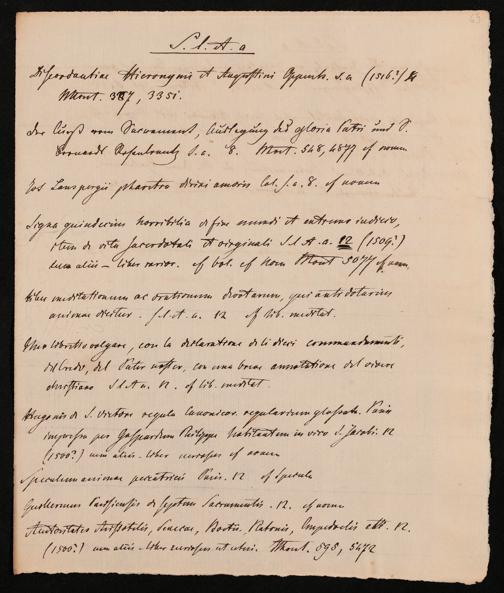 63
S. l. A. a
Discordantiae Hieronymi et Augustini Oppenh. s.a (1516?)
Mont. 387, 3351.
Der Curß vom Sacrament, Außlegung des gloria Patri und S.
Bernards Rosenkrantz s.a. 8. Mont. 548, 4877 cf nomen
Jos Lanspergii pharetra divini amoris Col. s.a. 8. cf nomen
Signa quindecim horribilia de fine mundi et extremo iudicio,
item de vita sacerdotali et virginali S l. A. a. 12 (1509?)
cum aliis – liber rarior. cf vol. cf Nom Mont 5077 cf nom.
liber meditationum ac orationum devotarum, qui antidotarius
animae dicitur. s. l. et a. 12 cf lib. meditat.
libretto volgare, con la declaratione de li dieci commandamenti,
del Credo, del Pater noster, con una breve annotatione del vivere
christiano S l A a. 12. cf lib. meditat.
Hugonis de S. Victore regula canonicor. regularium glossata. Paris
impressa per Gaspardum Philippe habitantem in vico S. Jacobi. 12
(1500?) cum aliis – liber cf nomen
Speculum animae peccatricis Paris. 12 cf specula
Guillermus Parisiensis de septem Sacramentis. 12. cf nomen
Auctoritates Aristotelis, Senecae, Boetii, Platonis, Empedoclis etc. 12.
(1500?) cum aliis – liber Mont. 898, 5472